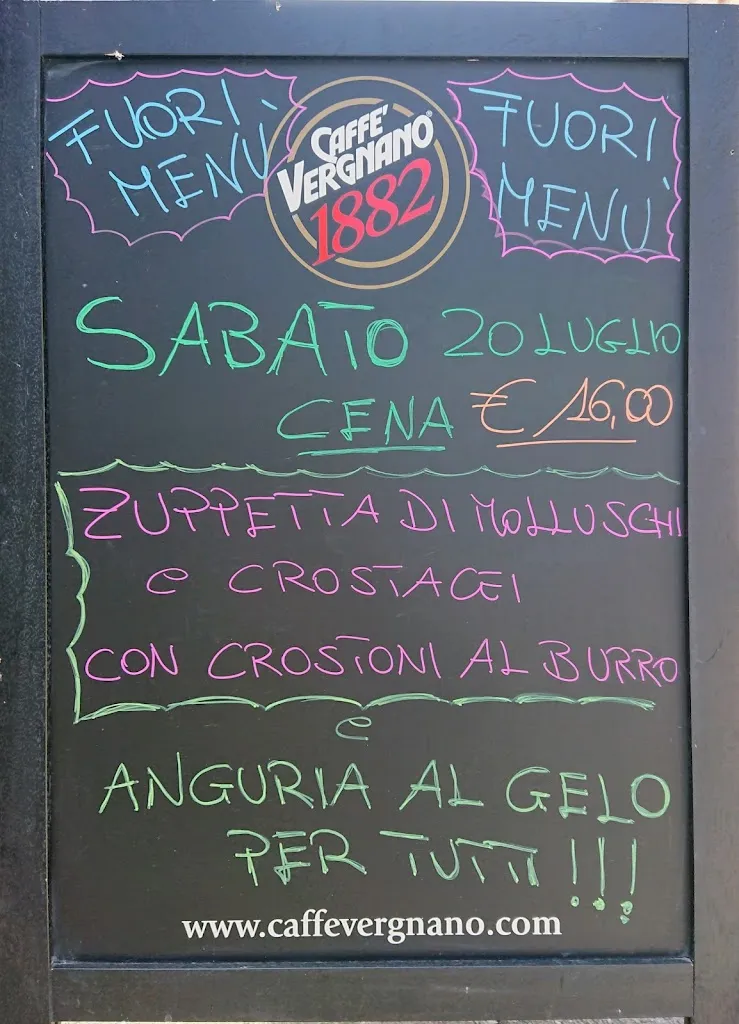 FUORI
MENÙ
CAFFÈ
VERGNANO®
1882
FUORI
MENÙ
SABATO 20 LUGLIO
CENA € 16,00
ZUPPETTA DI MOLLUSCHI
e CROSTACEI
CON CROSTONI AL BURRO
e
ANGURIA AL GELO
PER TUTTI!!!
www.caffevergnano.com